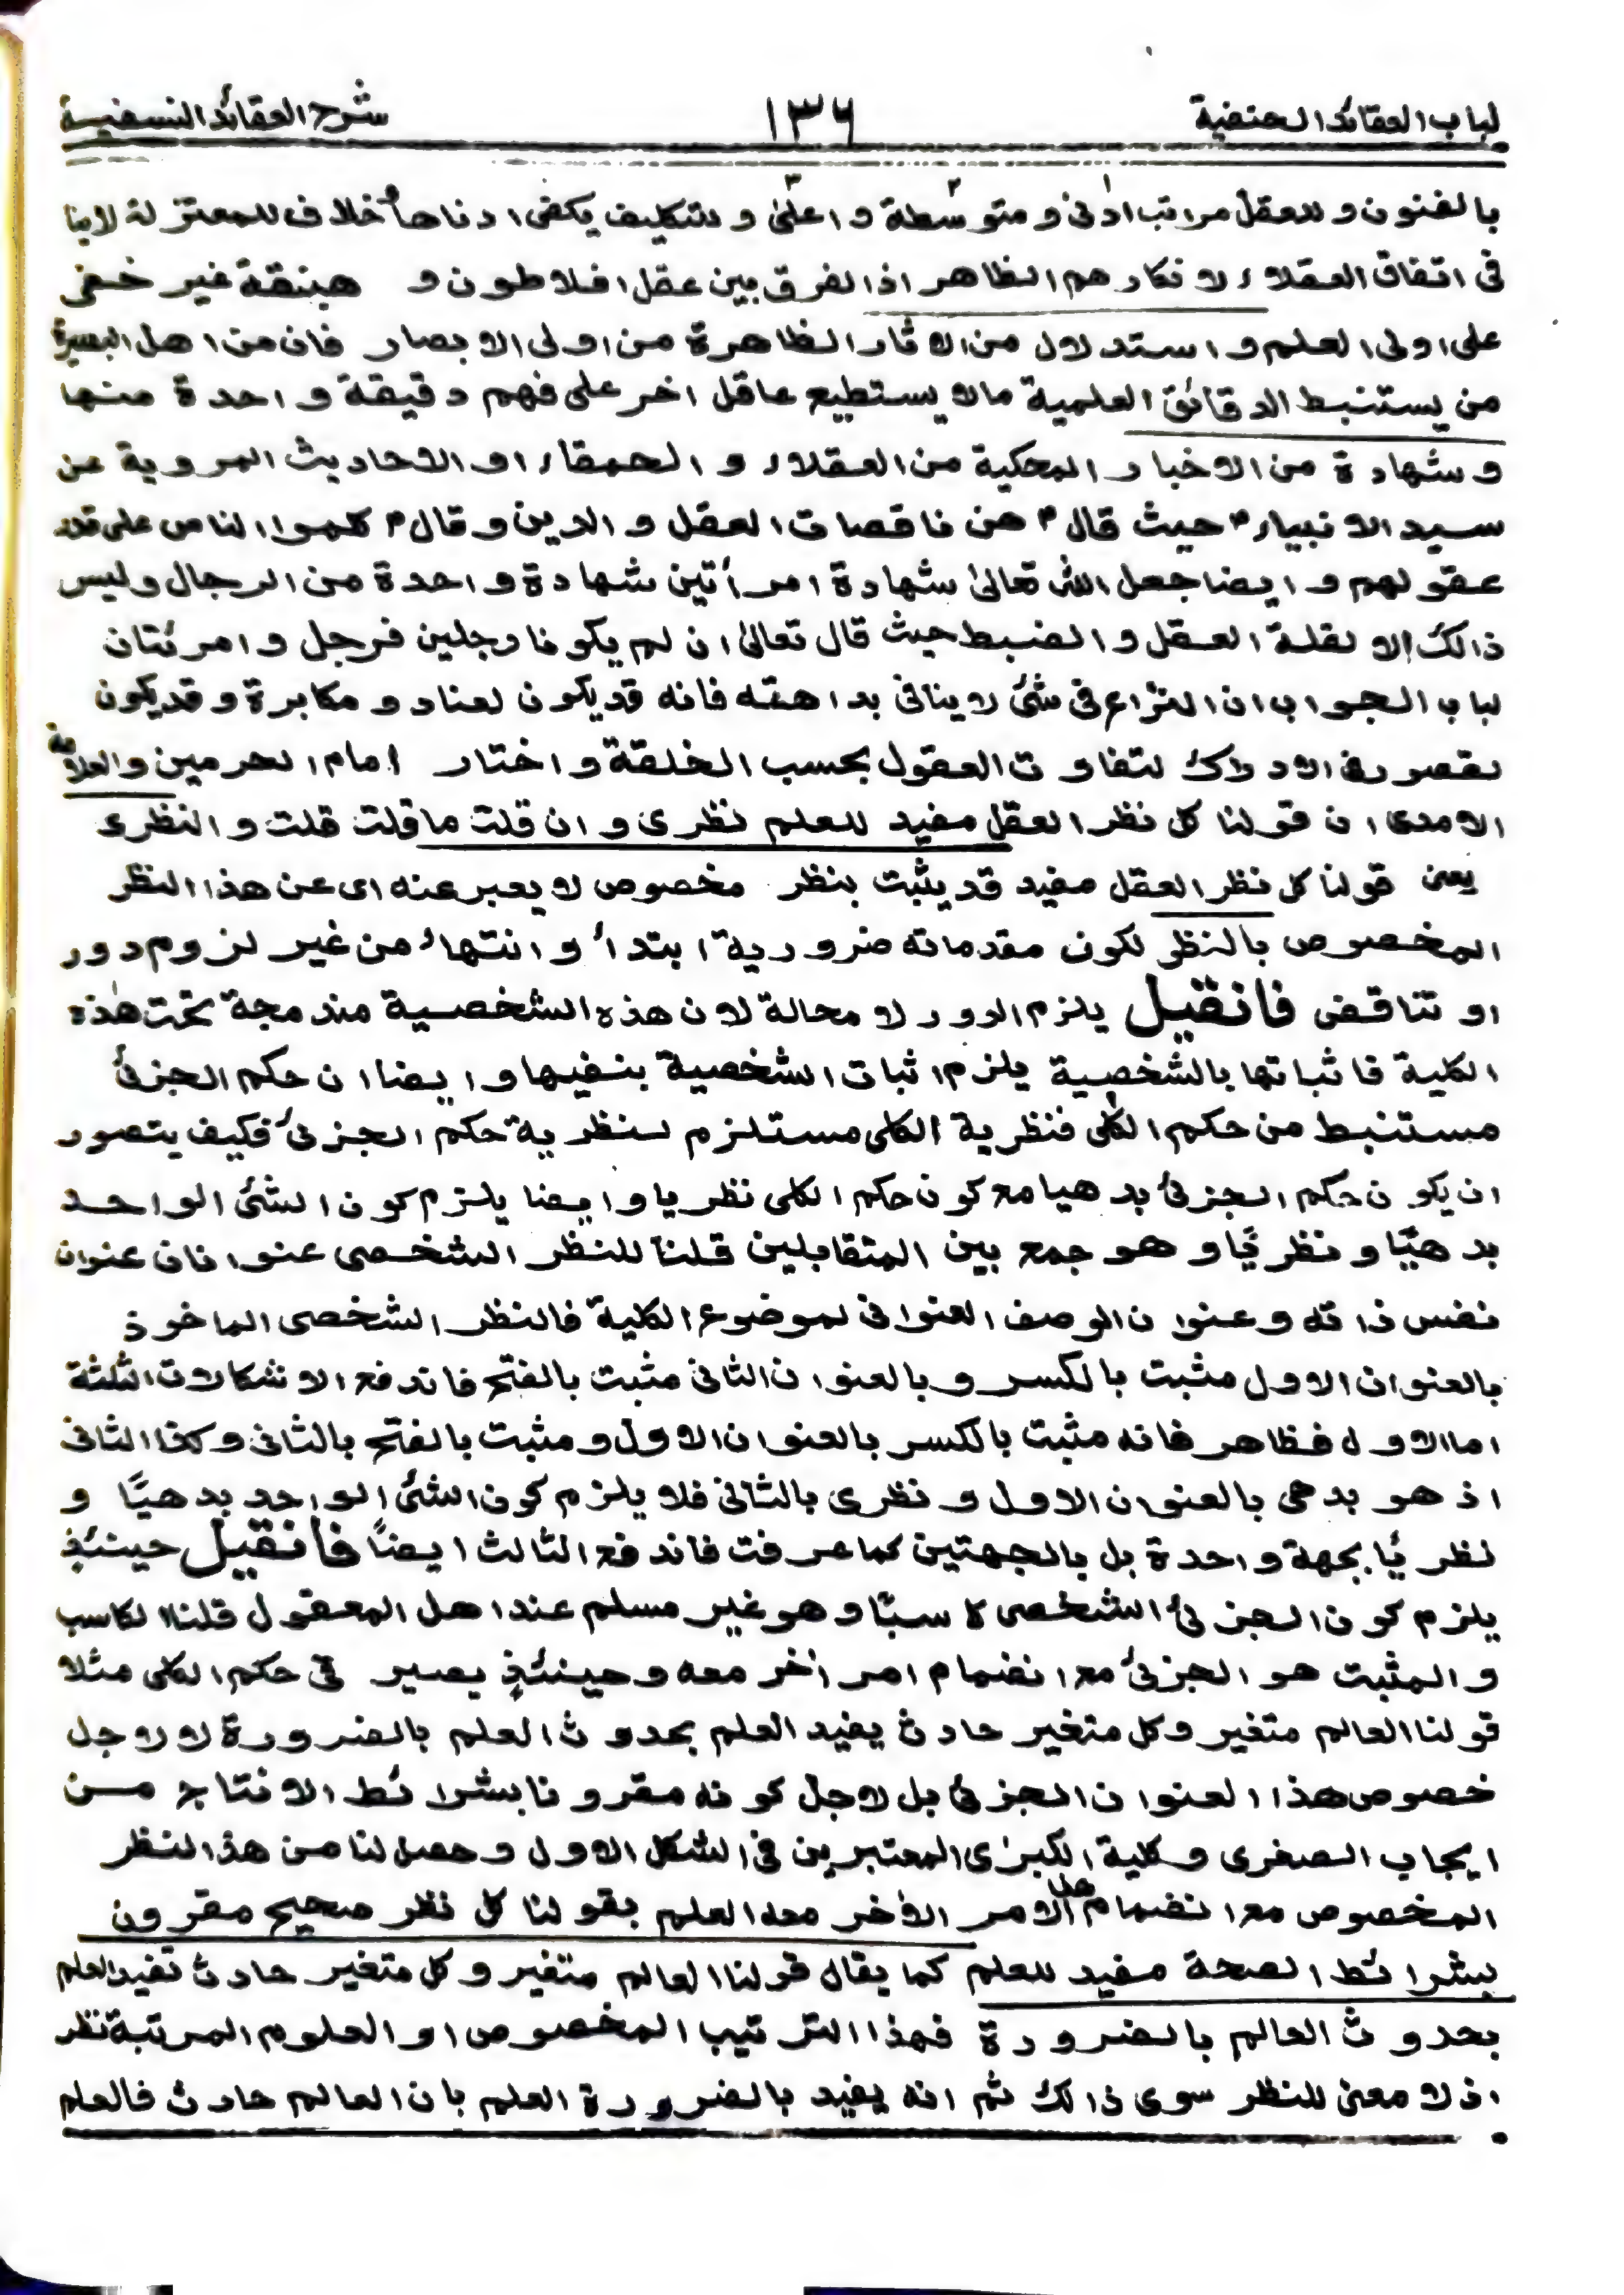 لباب العقائد الحنفية ١٣٦ شرح العقائد النسفية
بالفنون و للعقل مراتب ادنىٰ و متوسطة و اعلىٰ و للتكليف يكفى ادناها خلاف للمعتزلة لاينا
فى اتفاق العقلاء لا نكارهم الظاهر اذا لفرق بين عقل افلاطون و هبنقة غير خفى
على اولى العلم و استدلال من الاثار الظاهرة من اولى الابصار فان من اهل البصيرة
من يستنبط الدقائق العلمية مالا يستطيع عاقل اخر على فهم دقيقة واحدة منها
و شهادة من الاخبار المحكية من العقلاء و الحمقاء او الاحاديث المروية عن
سيد الانبياء ؐ حيث قال ؐ هن ناقصات العقل و الدين و قال ؐ كلموا الناس على قدر
عقولهم و ايضا جعل الله تعالىٰ شهادة امرأتين شهادة واحدة من الرجال وليس
ذالك الا لقلة العقل و الضبط حيث قال تعالىٰ ان لم يكونا رجلين فرجل و امرئتان
لباب الجواب ان النزاع فى شئ لا ينافى بداهته فانه قد يكون لعناد و مكابرة و قد يكون
لقصور فى الادراك لتفاوت العقول بحسب الخلقة و اختار امام الحرمين والعلامة
الامدى ان قولنا كل نظر العقل مفيد للعلم نظرى و ان قلت ما قلت قلت و النظرى
يعنى قولنا كل نظر العقل مفيد قد يثبت بنظر مخصوص لا يعبر عنه اى عن هذا النظر
المخصوص بالنظر لكون مقدماته ضرورية ابتداءً و انتهاءً من غير لزوم دور
او تناقض فانقيل يلزم الدور لا محالة لان هذه الشخصية مندمجة تحت هٰذه
الكلية فاثباتها بالشخصية يلزم اثبات الشخصية بنفيها و ايضا ان حكم الجزئ
مستنبط من حكم الكلى فنظرية الكلى مستلزم لنظرية حكم الجزئ فكيف يتصور
ان يكون حكم الجزئ بدهيا مع كون حكم الكلى نظريا و ايضا يلزم كون الشئ الواحد
بدهيًا و نظريًا و هو جمع بين المتقابلين قلنا للنظر الشخصى عنوانان عنوان
نفس ذاته و عنوان الوصف العنوانى لموضوع الكلية فالنظر الشخصى الماخوذ
بالعنوان الاول مثبت بالكسر و بالعنوان الثانى مثبت بالفتح فاندفع الاشكالات الثلثة
اما الاول فظاهر فانه مثبت بالكسر بالعنوان الاول و مثبت بالفتح بالثانى و كذا الثانى
اذ هو بدهى بالعنوان الاول و نظرى بالثانى فلا يلزم كون الشئ الواحد بدهيًا و
نظريًا بجهة واحدة بل بالجهتين كما عرفت فاندفع الثالث ايضًا فانقيل حينئذٍ
يلزم كون الجزئ الشخصى كاسبًا و هو غير مسلم عند اهل المعقول قلنا الكاسب
و المثبت هو الجزئ مع انضمام امر اٰخر معه و حينئذٍ يصير فى حكم الكلى مثلا
قولنا العالم متغير و كل متغير حادث يفيد العلم بحدوث العلم بالضرورة لا لاجل
خصوص هذا العنوان الجزئ بل لاجل كونه مقرونا بشرائط الانتاج من
ايجاب الصغرى و كلية الكبرٰى المعتبرين فى الشكل الاول و حصل لنا من هذا النظر
المخصوص مع انضمام هذا الامر الاٰخر معه العلم بقولنا كل نظر صحيح مقرون
بشرائط الصحة مفيد للعلم كما يقال قولنا العالم متغير و كل متغير حادث تفيد العلم
بحدوث العالم بالضرورة فهذا الترتيب المخصوص او العلوم المرتبة نظر
اذ لا معنى للنظر سوى ذالك ثم انه يفيد بالضرورة العلم بان العالم حادث فالعلم